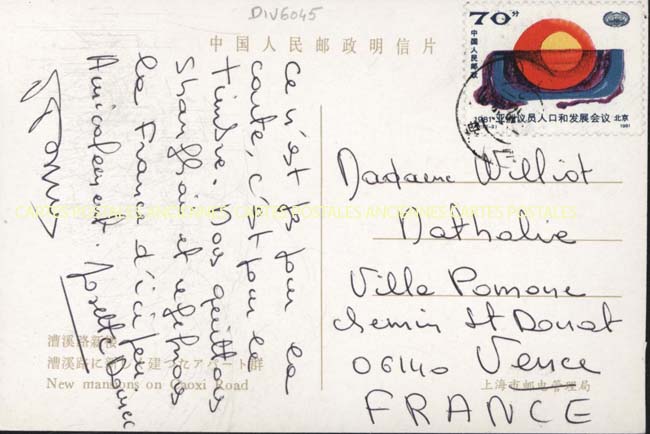 DIV6045
中国人民邮政明信片
70分
中国人民邮政
1981·亚洲议员人口和发展会议·北京
1981
Ce n'est pas pour la
carte, c'est pour le
timbre. Nous quittons
Shanghai et
la France d'ici peu
Amicalement. Josette
Madame Williot
Nathalie
Villa Pomone
chemin St Donat
06140 Vence
FRANCE
CARTES POSTALES ANCIENNES CARTES POSTALES ANCIENNES CARTES POSTALES
漕溪路新楼
漕溪路に新しく建ったアパート群
New mansions on Caoxi Road
上海市邮电管理局